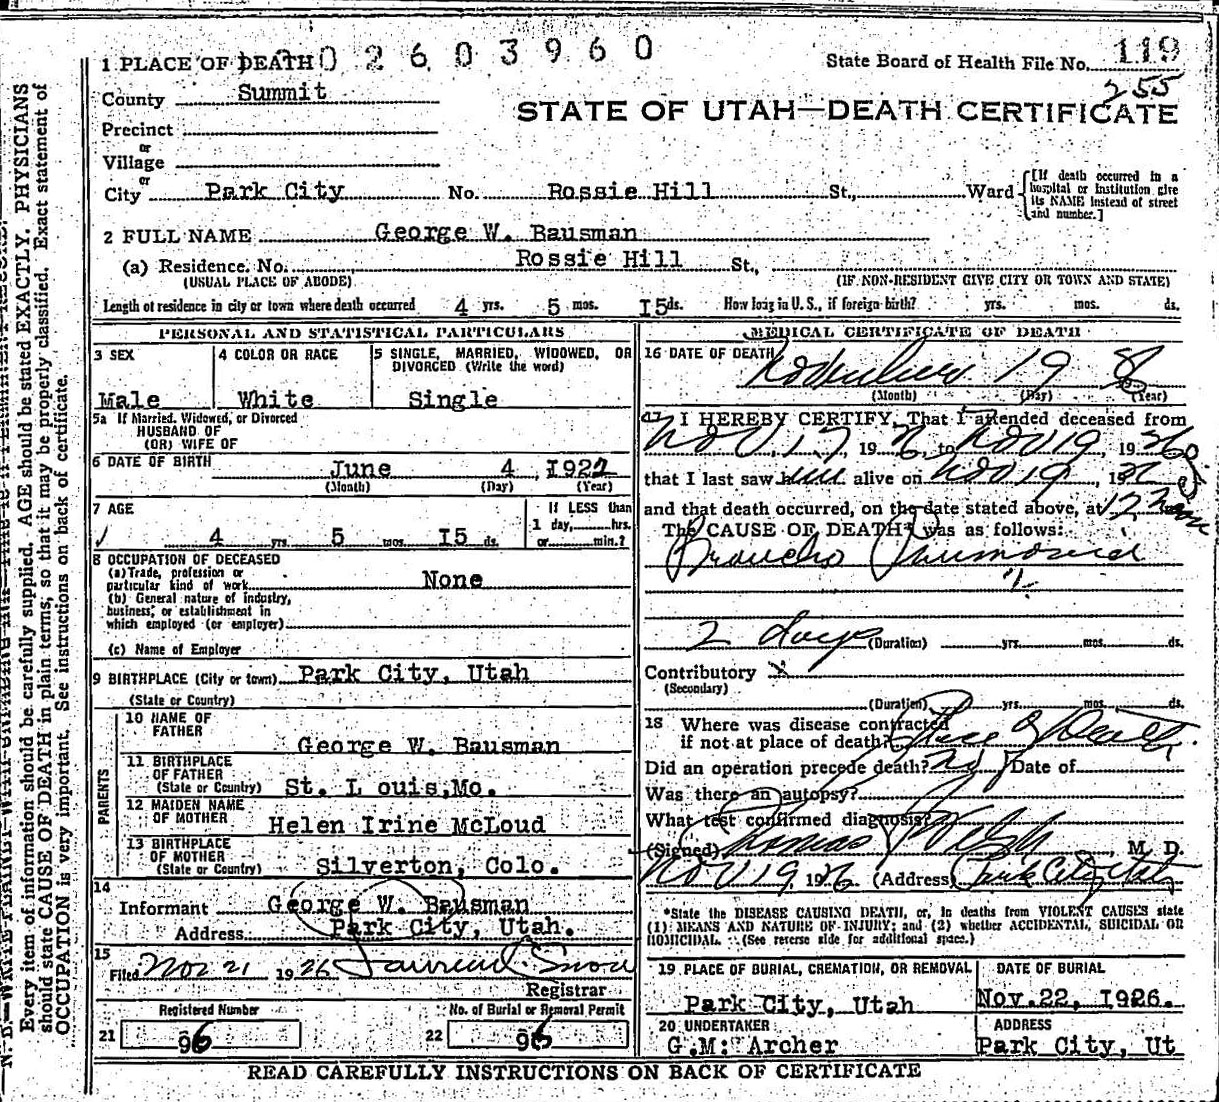 1 PLACE OF DEATH 0 2 6 0 3 9 6 0
State Board of Health File No. 119
255
County Summit
STATE OF UTAH—DEATH CERTIFICATE
Precinct
or
Village
or
City Park City No. Rossie Hill St., Ward
[If death occurred in a hospital or institution give its NAME instead of street and number.]
2 FULL NAME George W. Bausman
(a) Residence. No. Rossie Hill St.,
(USUAL PLACE OF ABODE) (IF NON-RESIDENT GIVE CITY OR TOWN AND STATE)
Length of residence in city or town where death occurred 4 yrs. 5 mos. I5 ds. How long in U. S., if foreign birth? yrs. mos. ds.
PERSONAL AND STATISTICAL PARTICULARS
3 SEX
Male
4 COLOR OR RACE
White
5 SINGLE, MARRIED, WIDOWED, OR
DIVORCED (Write the word)
Single
5a If Married, Widowed, or Divorced
HUSBAND OF
(OR) WIFE OF
6 DATE OF BIRTH June 4, I922
(Month) (Day) (Year)
7 AGE
4 yrs. 5 mos. I5 ds.
If LESS than
1 day, hrs.
or min.?
8 OCCUPATION OF DECEASED
(a) Trade, profession or
particular kind of work None
(b) General nature of industry,
business, or establishment in
which employed (or employer)
(c) Name of Employer
9 BIRTHPLACE (City or town) Park City, Utah
(State or Country)
PARENTS
10 NAME OF
FATHER George W. Bausman
11 BIRTHPLACE
OF FATHER
(State or Country) St. L ouis,Mo.
12 MAIDEN NAME
OF MOTHER Helen Irine McLoud
13 BIRTHPLACE
OF MOTHER
(State or Country) Silverton, Colo.
14
Informant George W. Bausman
Address Park City, Utah.
15
Filed Nov 21 1926 Snow
Registrar
Registered Number
21 96
No. of Burial or Removal Permit
22 96
MEDICAL CERTIFICATE OF DEATH
16 DATE OF DEATH November 19
(Month) (Day) (Year)
17 I HEREBY CERTIFY, That I attended deceased from
Nov 17, 1926, to Nov 19, 1926
that I last saw him alive on Nov 19, 192
and that death occurred, on the date stated above, at 12
The CAUSE OF DEATH* was as follows:
Broncho Pneumonia
2 days (Duration) yrs. mos. ds.
Contributory x
(Secondary)
(Duration) yrs. mos. ds.
18 Where was disease contracted
if not at place of death? Place of Death
Did an operation precede death? No Date of
Was there an autopsy?
What test confirmed diagnosis?
(Signed) Thomas Welsh, M. D.
Nov 19, 1926 (Address) Park City Utah
*State the DISEASE CAUSING DEATH, or, in deaths from VIOLENT CAUSES state
(1) MEANS AND NATURE OF INJURY; and (2) whether ACCIDENTAL, SUICIDAL OR
HOMICIDAL. (See reverse side for additional space.)
19 PLACE OF BURIAL, CREMATION, OR REMOVAL
Park City, Utah
DATE OF BURIAL
Nov.22, I926.
20 UNDERTAKER
G.M. Archer
ADDRESS
Park City, Ut
READ CAREFULLY INSTRUCTIONS ON BACK OF CERTIFICATE
Every item of information should be carefully supplied. AGE should be stated EXACTLY. PHYSICIANS
should state CAUSE OF DEATH in plain terms, so that it may be properly classified. Exact statement of
OCCUPATION is very important. See instructions on back of certificate.